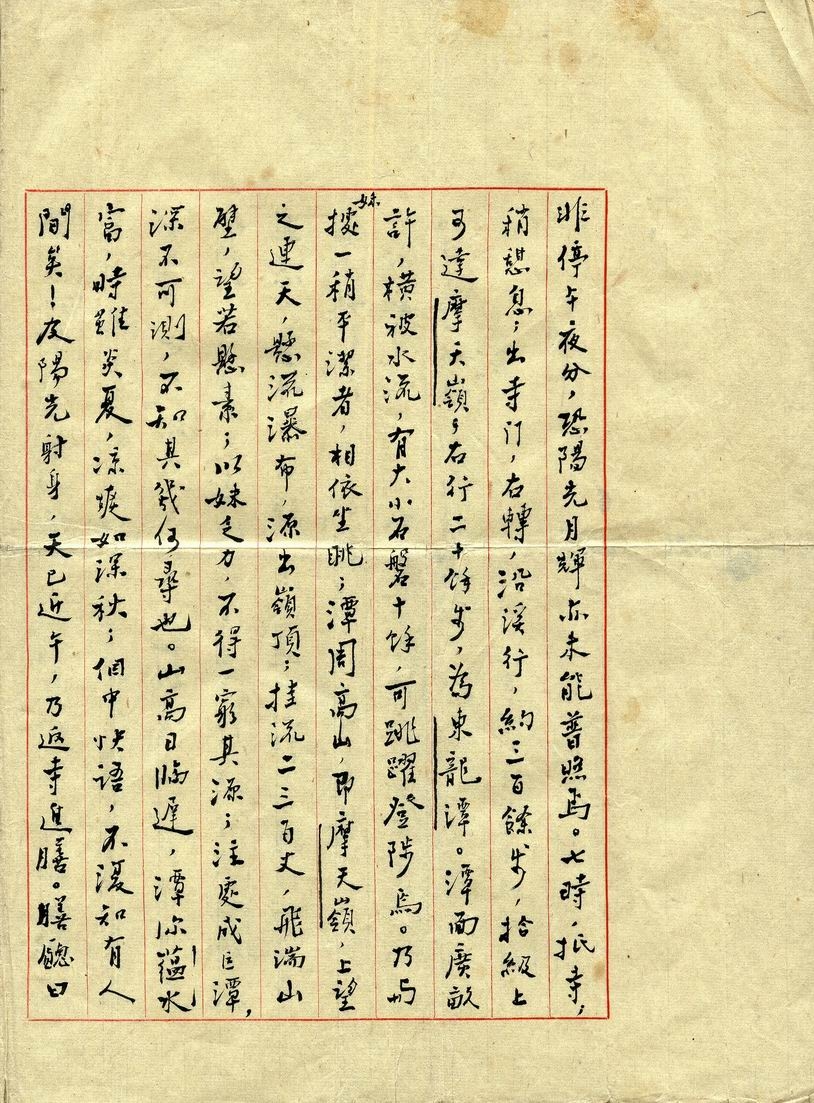 非停午夜分，恐陽光月輝亦未能普照焉。七時，抵寺；
稍憇息；出寺门，右轉，沿溪行，約三百餘步，拾級上
可達摩天嶺；右行二十餘步，為東龍潭。潭面廣畝
許，橫被水流，有大小石磐十餘，可跳躍登陟焉。乃与
妹
擾一稍平潔者，相依坐眺；潭周高山，即摩天嶺，上望
之連天，懸流瀑布，源出嶺頂；挂流二三百丈，飛湍山
壁，望若懸素；以妹乏力，不得一窮其源；注處成巨潭，
深不可測，不知其幾何尋也。山高日臨遲，潭深蘊水
富，時雖炎夏，凉爽如深秋；個中快語，不復知有人
間矣！及陽光射身，天已近午，乃返寺進膳。膳聽曰